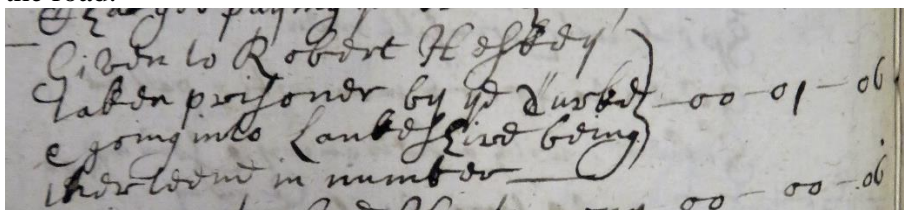 the road.
Given to Robert Heskey
taken prisoner by ye Turke 00 01 06
& going into Lankeshire being
therteene in number
00 00 06